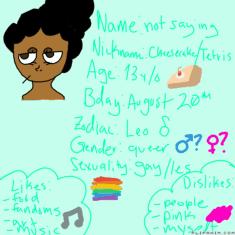 Name: not saying
Nickname: Cheesecake/Tetris
Age: 13 y/o
Bday: August 20th
Zodiac: Leo ♌
Gender: queer ♂? ♀?
Sexuality: gay/les
Likes:
- food
- fandoms
- art
- music
Dislikes:
- people
- pink
- myself